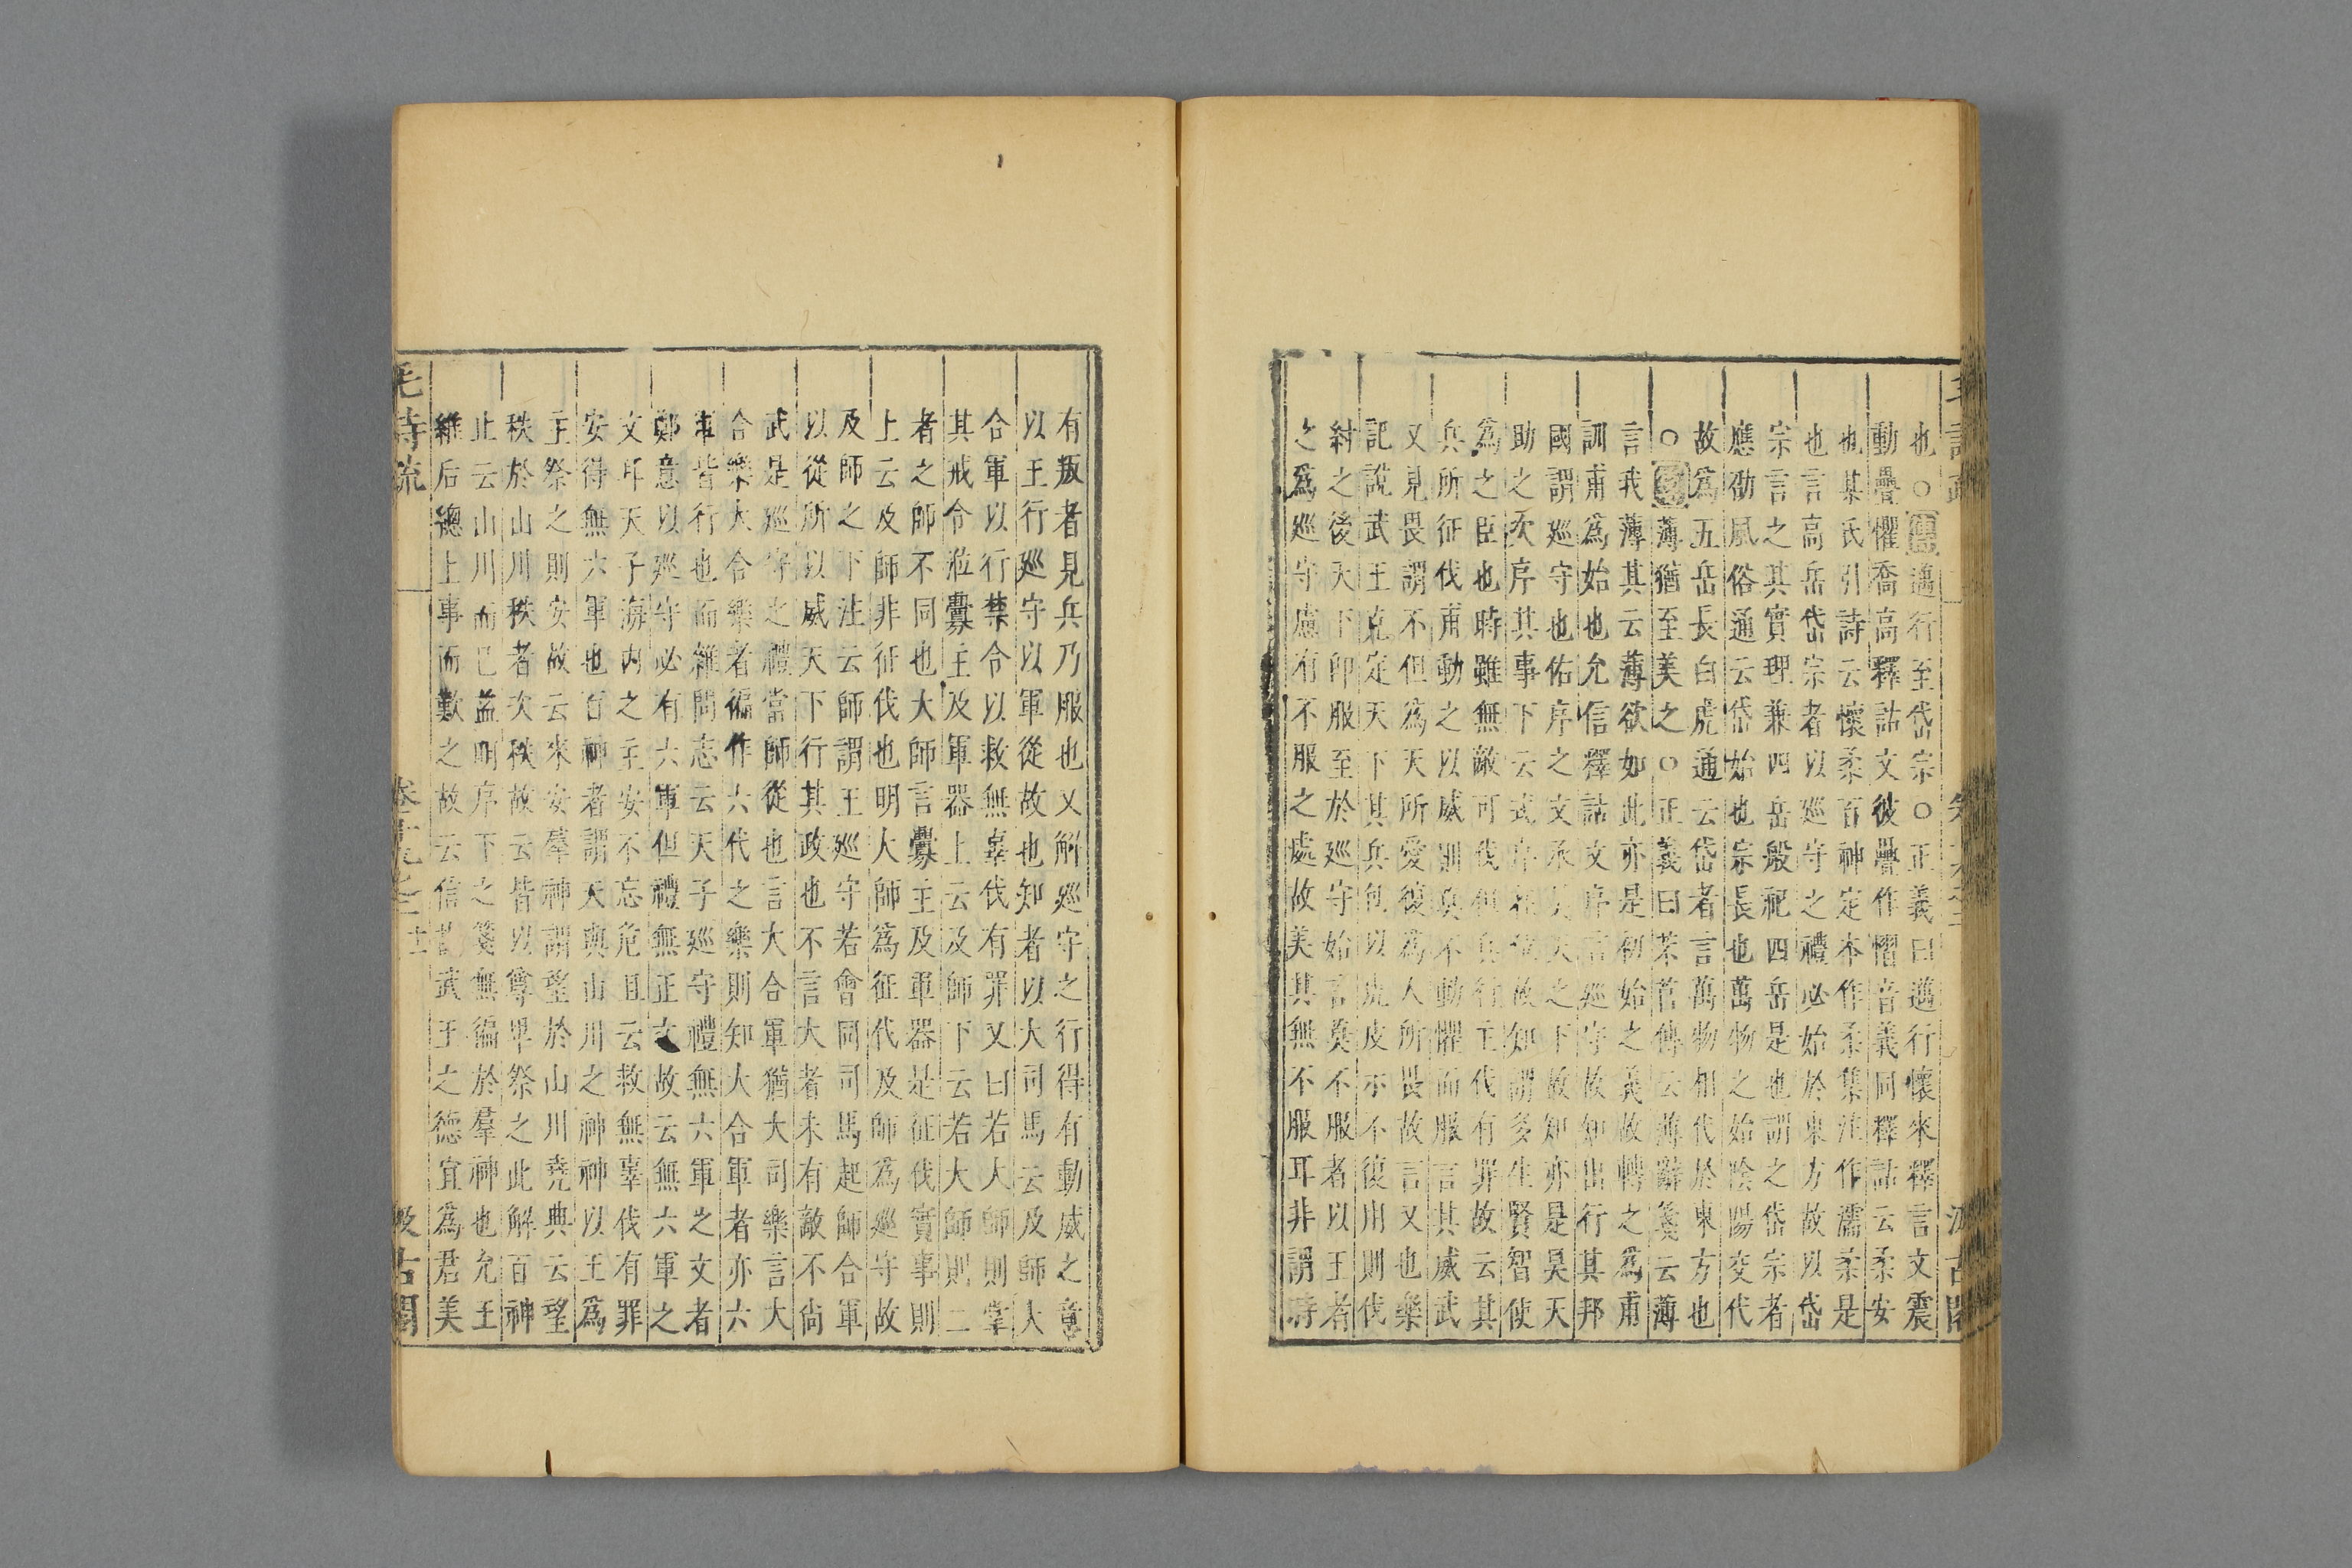 也○傳邁行至岱宗○正義曰邁行懷來釋言文震
動疊懼喬高釋詁文彼疊作慴音義同釋詁云柔安
也某氏引詩云懷柔百神定本作柔集注作濡柔是
也言高岳岱宗者以巡守之禮必始於東方故以岱
宗言之其實理兼四岳般祀四岳是也謂之岱宗者
應劭風俗通云岱始也宗長也萬物之始陰陽交代
故爲五岳長白虎通云岱者言萬物相代於東方也
○箋薄猶至美之○正義曰芣苢傳云薄辭箋云薄
言我薄其云薄欲如此亦是初始之義故轉之爲甫
訓甫爲始也允信釋詁文序言巡守故知出行其邦
國謂巡守也佑序之文承昊天之下故知亦是昊天
助之次序其事下云式序在位故知謂多生賢智使
爲之臣也時雖無敵可伐但兵行主代有罪故云其
兵所征伐甫動之以威則莫不動懼而服言其威武
又見畏謂不但爲天所愛復爲人所畏故言又也樂
記說武王克定天下其兵包以虎皮示不復用則伐
紂之後天下卽服至於巡守始言莫不服者以王者
之爲巡守慮有不服之處故美其無不服耳非謂時
有叛者見兵乃服也又解巡守之行得有動威之意
以王行巡守以軍從故也知者以大司馬云及師大
合軍以行禁令以救無辜伐有罪又曰若大師則掌
其戒令涖釁主及軍器上云及師下云若大師則二
者之師不同也大師言釁主及軍器是征伐實事則
上云及師非征伐也明人師爲征代及師爲巡守故
及師之下注云師謂王巡守若會同司馬起師合軍
以從所以威天下行其政也不言大者未有敵不尙
武是巡守之禮當師從也言大合軍猶大司樂言大
合樂大合樂者徧作六代之樂則知大合軍者亦六
軍皆行也而雜問志云天子巡守禮無六軍之文者
鄭意以巡守必有六軍但禮無正文故云無六軍之
文耳天子海內之主安不忘危且云救無辜伐有罪
安得無六軍也百神者謂天與山川之神神以王爲
主祭之則安故云來安羣神謂望於山川堯典云望
秩於山川秩者次秩故云皆以尊卑祭之此解百神
止云山川而已益明序下之箋無徧於羣神也允王
維后總上事而歎之故云信哉武王之德宜爲君美
毛詩疏 卷十九之二 士 汲古閣